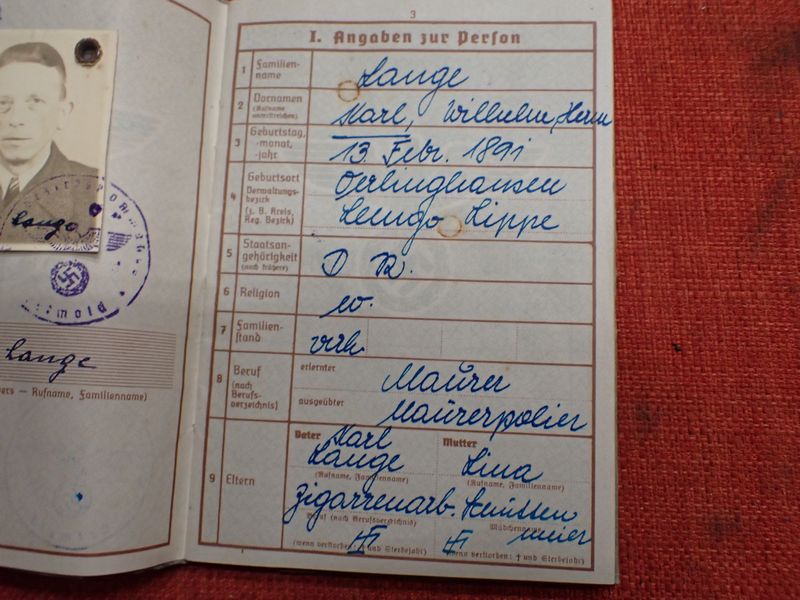 Lange
Detmold
Lange
ers — Rufname, Familienname)
3
I. Angaben zur Person
1 Familien-
name
Lange
2 Vornamen
(Rufname
unterstreichen)
Karl, Wilhelm, Herm
3 Geburtstag,
-monat,
-jahr
13. Febr. 1891
4 Geburtsort
Verwaltungs-
bezirk
(z. B. Kreis,
Reg. Bezirk)
Oerlinghausen
Lemgo Lippe
5 Staatsan-
gehörigkeit
(auch frühere)
D R.
6 Religion
ev.
7 Familien-
stand
verh.
8 Beruf
(nach
Berufs-
verzeichnis)
erlernter
Maurer
ausgeübter
Maurerpolier
9 Eltern
Vater
Karl
Lange
(Rufname, Familienname)
Zigarrenarb.
Beruf (nach Berufsverzeichnis)
(wenn verstorben † und Sterbejahr)
Mutter
Lina
(Rufname, Familienname)
Mädchenname
meier
(wenn verstorben: † und Sterbejahr)
1